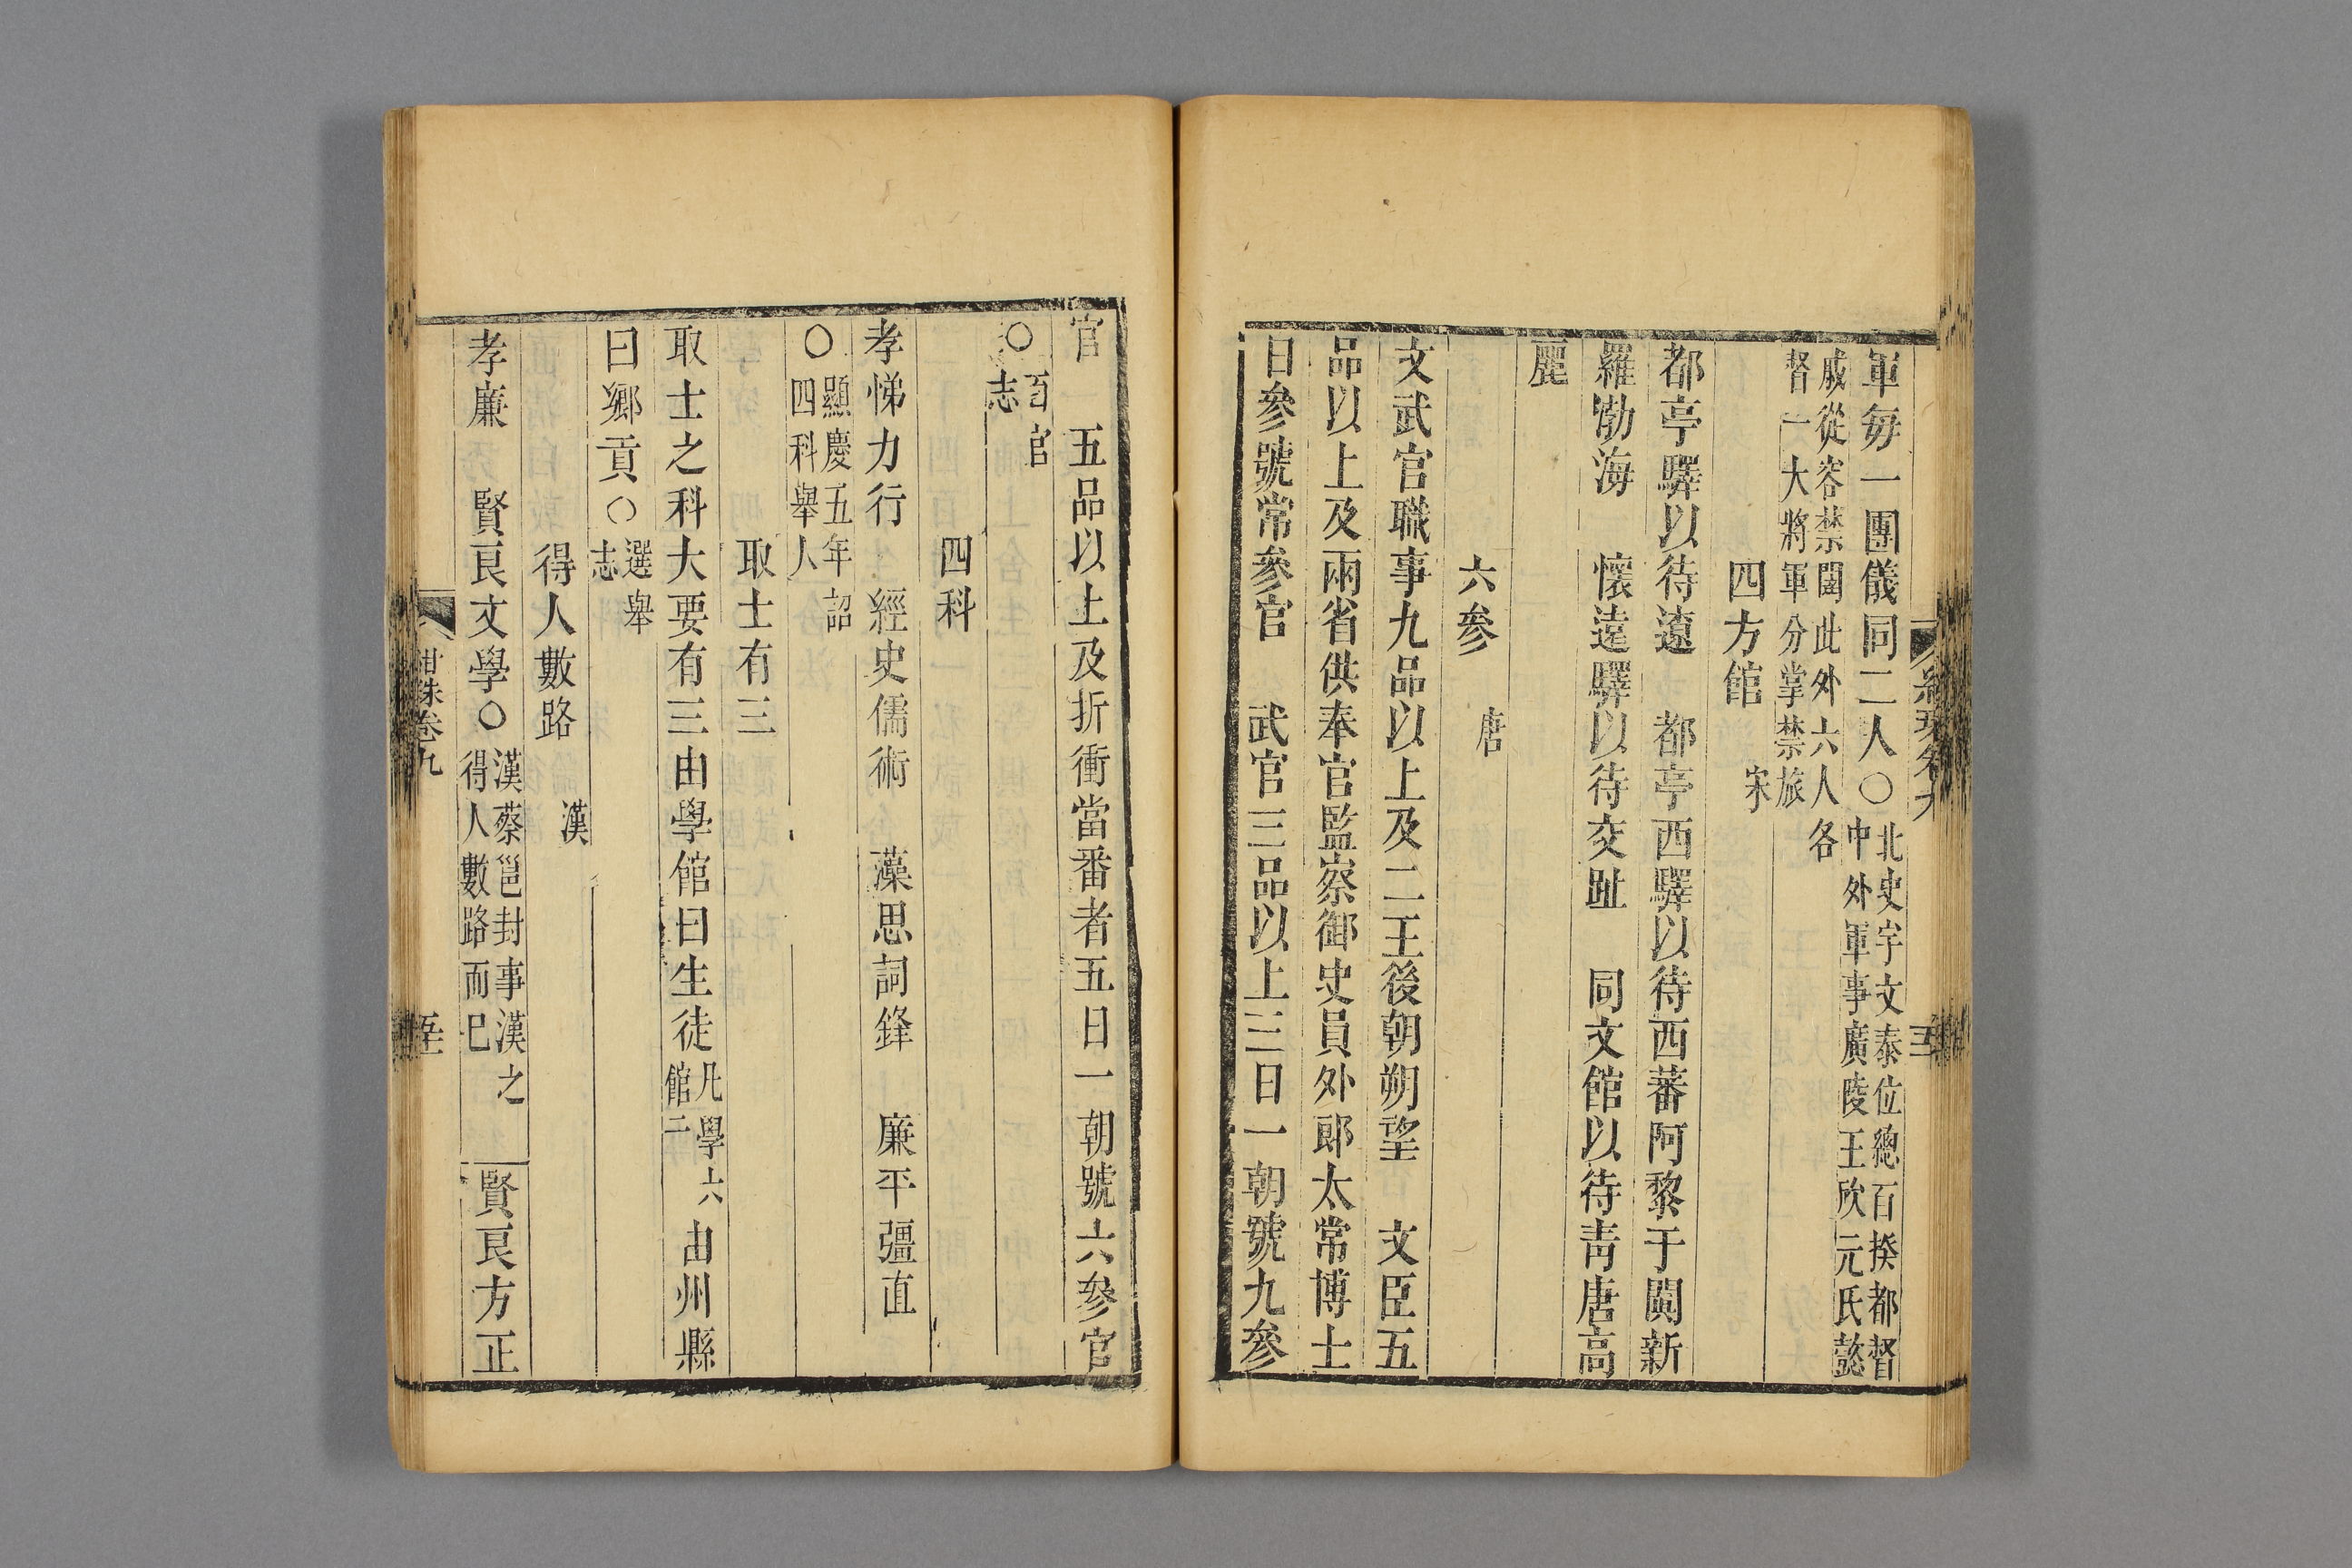 軍每一團儀同二人○北史宇文泰位總百揆都督
中外軍事廣陵王欣元氏懿
戚從容禁闥此外六人各
督一大將軍分掌禁旅
四方館 宋
都亭驛以待遼 都亭西驛以待西蕃阿黎于闐新
羅渤海 懷遠驛以待交趾 同文館以待青唐高
麗
六參 唐
文武官職事九品以上及二王後朝朔望 文臣五
品以上及兩省供奉官監察御史員外郎太常博士
日參號常參官 武官三品以上三日一朝號九參
官 五品以上及折衝當番者五日一朝號六參官
○百官
志
四科
孝悌力行 經史儒術 藻思詞鋒 廉平彊直
○顯慶五年詔
四科舉人
取士有三
取士之科大要有三由學館曰生徒凡學六
館二 由州縣
曰鄉貢○選舉
志
得人數路 漢
孝廉 賢良文學○漢蔡邕封事漢之
得人數路而已 賢良方正
紺珠卷九